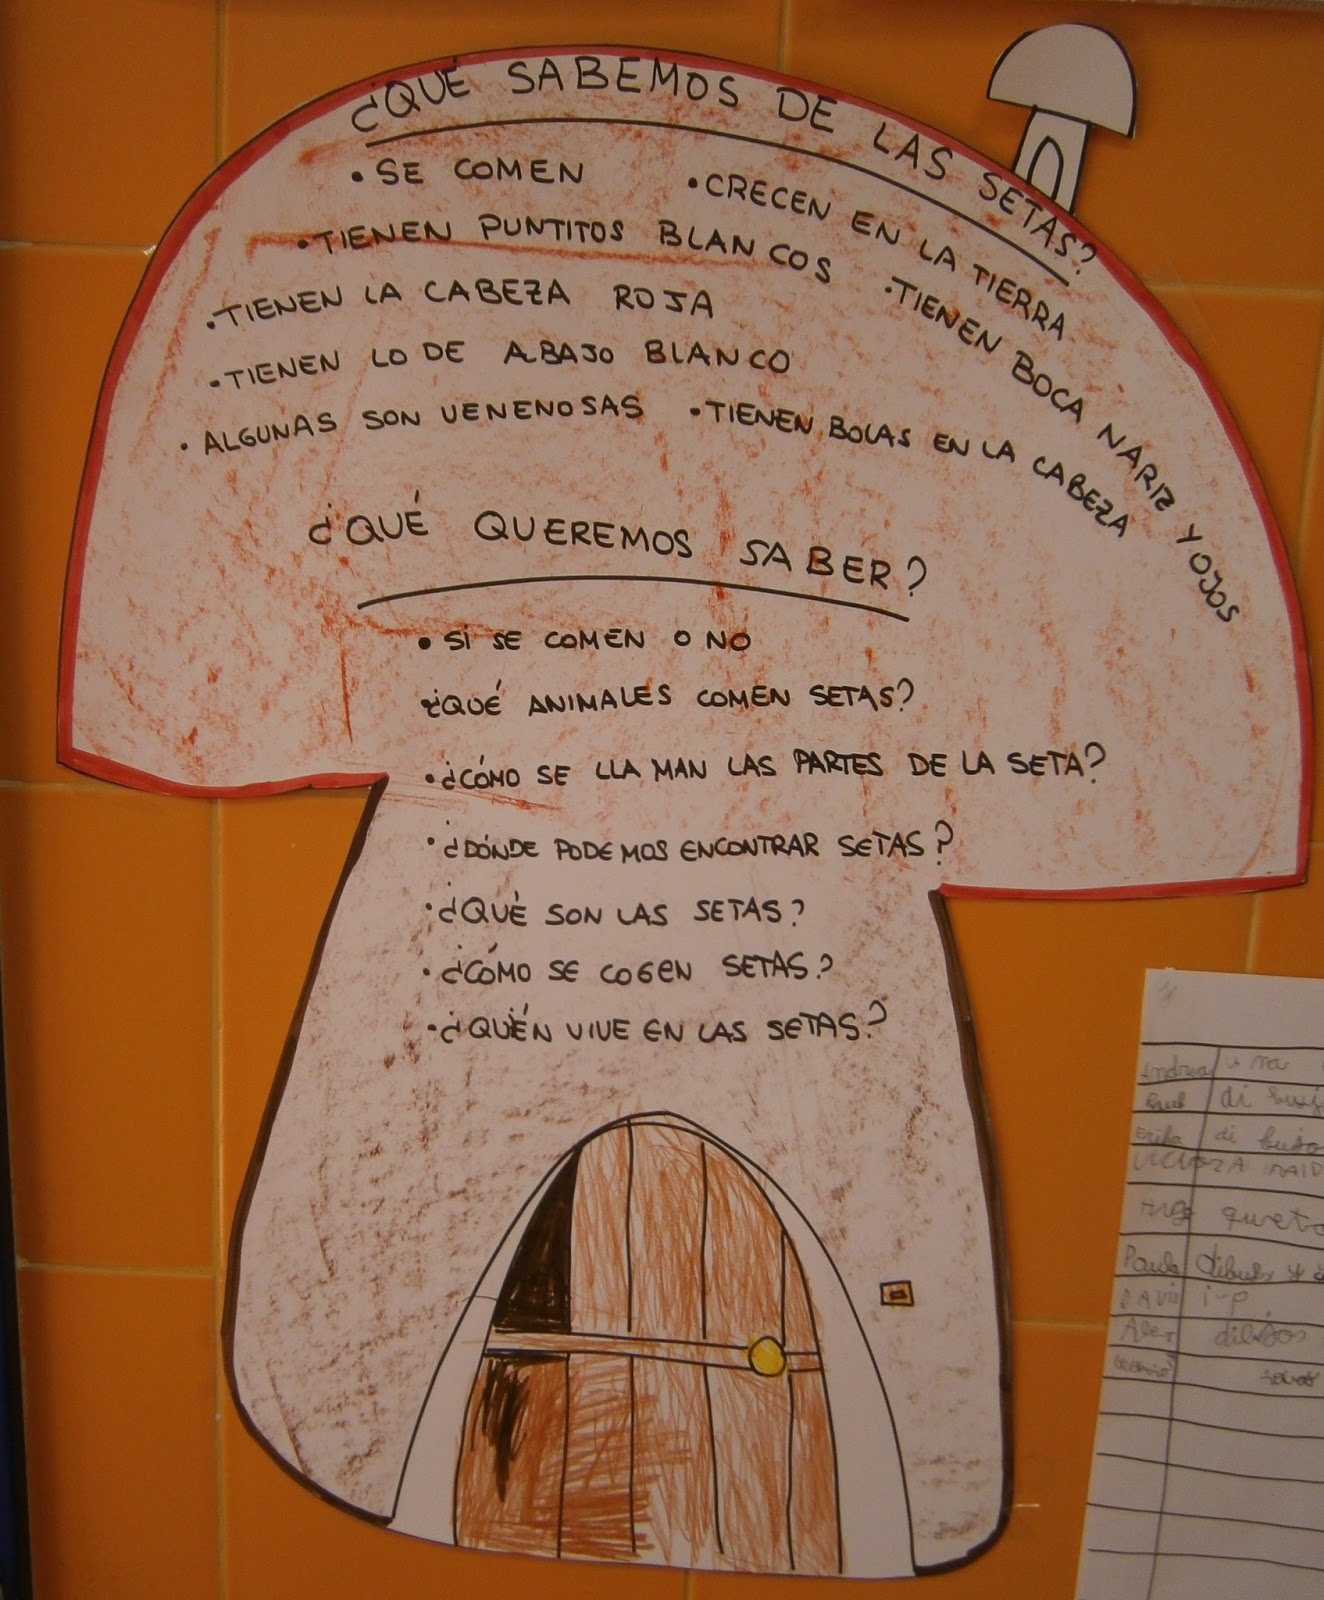 ¿QUÉ SABEMOS DE LAS SETAS?
• SE COMEN
• CRECEN EN LA TIERRA
• TIENEN PUNTITOS BLANCOS
• TIENEN BOCA NARIZ Y OJOS
• TIENEN LA CABEZA ROJA
• TIENEN LO DE ABAJO BLANCO
• ALGUNAS SON VENENOSAS
• TIENEN BOLAS EN LA CABEZA
¿QUÉ QUEREMOS SABER?
• SI SE COMEN O NO
¿QUÉ ANIMALES COMEN SETAS?
• ¿CÓMO SE LLAMAN LAS PARTES DE LA SETA?
• ¿DÓNDE PODEMOS ENCONTRAR SETAS?
• ¿QUÉ SON LAS SETAS?
• ¿CÓMO SE COGEN SETAS?
• ¿QUIÉN VIVE EN LAS SETAS?
Andrea
Erika di
Paula
DAVID
Alex